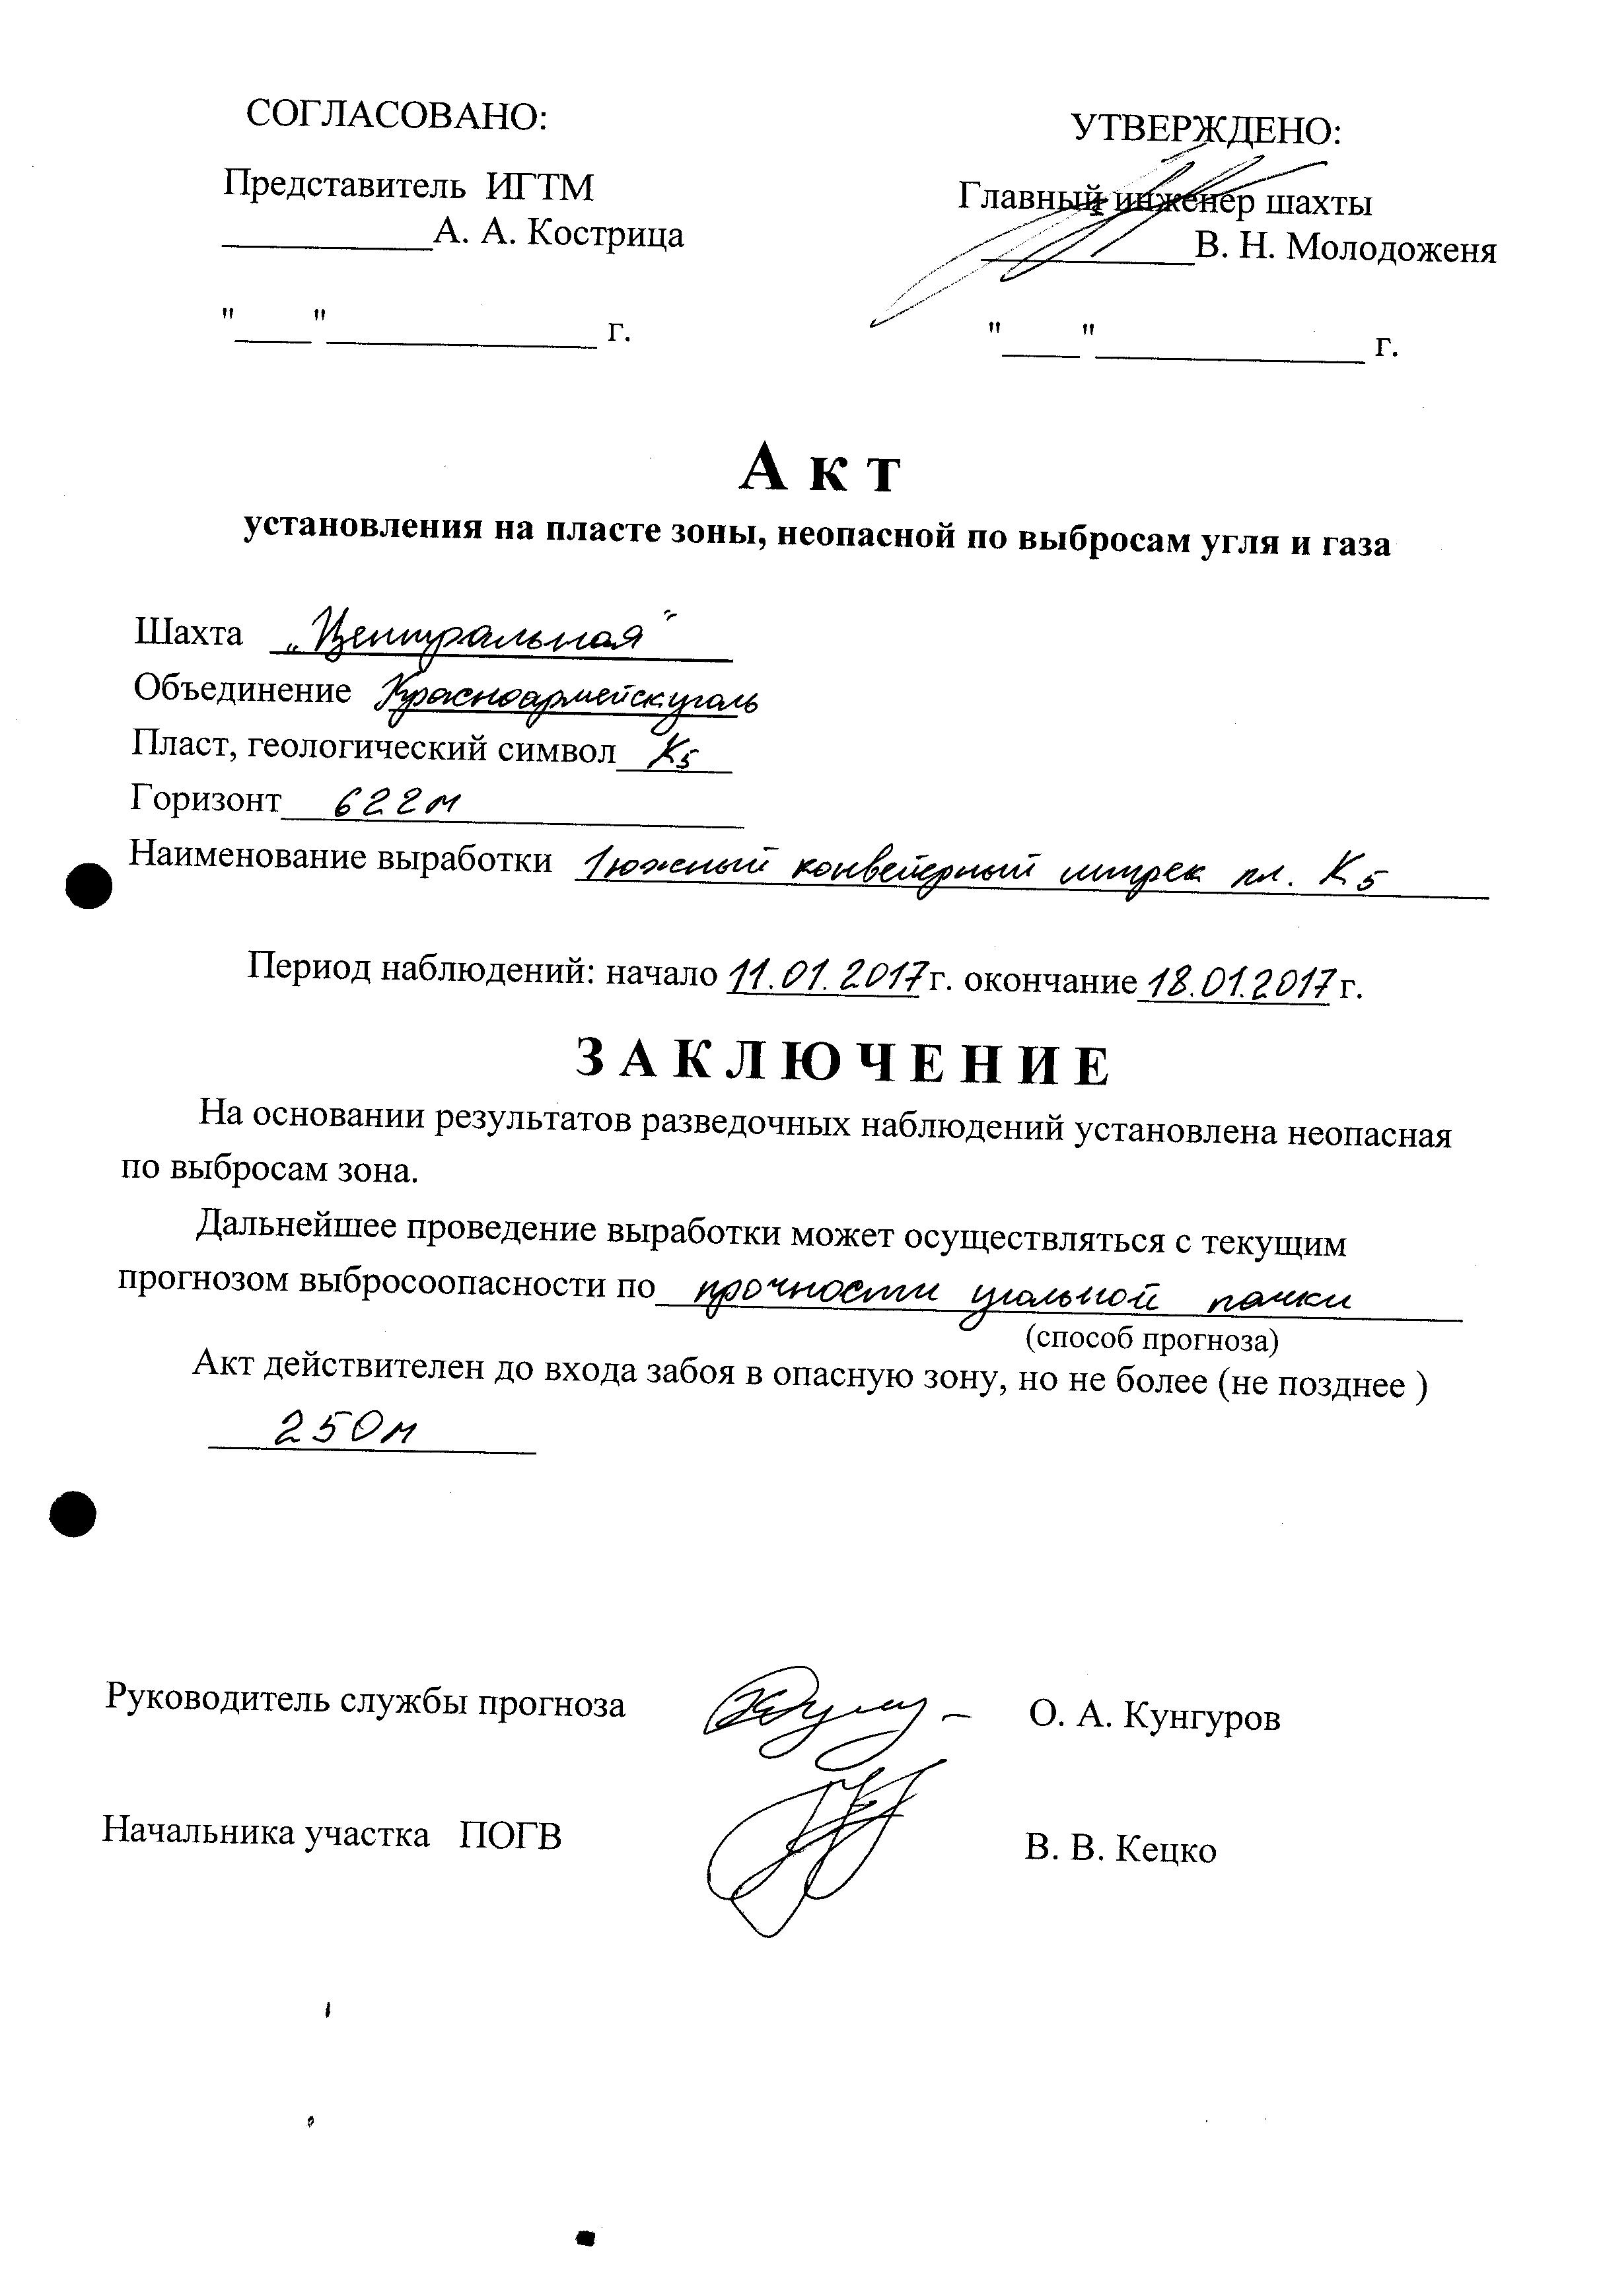 СОГЛАСОВАНО:
Представитель ИГТМ
___________А. А. Кострица
"____"______________ г.
УТВЕРЖДЕНО:
Главный инженер шахты
___________В. Н. Молодоженя
"____"______________ г.
А к т
установления на пласте зоны, неопасной по выбросам угля и газа
Шахта „Центральная"
Объединение Красноармейскуголь
Пласт, геологический символ К5
Горизонт 622м
Наименование выработки 1 южный конвейерный штрек пл. К5
Период наблюдений: начало 11.01.2017 г. окончание 18.01.2017 г.
З А К Л Ю Ч Е Н И Е
На основании результатов разведочных наблюдений установлена неопасная
по выбросам зона.
Дальнейшее проведение выработки может осуществляться с текущим
прогнозом выбросоопасности по прочности угольной пачки
(способ прогноза)
Акт действителен до входа забоя в опасную зону, но не более (не позднее )
250м
Руководитель службы прогноза О. А. Кунгуров
Начальника участка ПОГВ В. В. Кецко